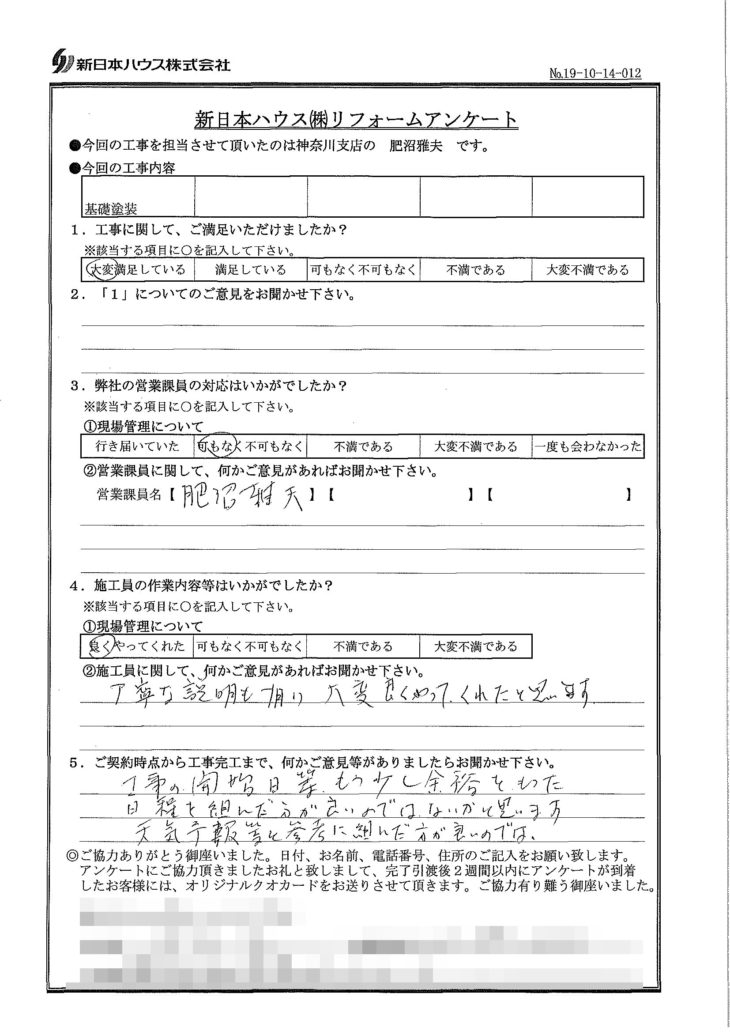 新日本ハウス株式会社
No.19-10-14-012
新日本ハウス㈱リフォームアンケート
●今回の工事を担当させて頂いたのは神奈川支店の 肥沼雅夫 です。
●今回の工事内容
基礎塗装
1．工事に関して、ご満足いただけましたか？
※該当する項目に○を記入して下さい。
大変満足している 満足している 可もなく不可もなく 不満である 大変不満である
2．「1」についてのご意見をお聞かせ下さい。
3．弊社の営業課員の対応はいかがでしたか？
※該当する項目に○を記入して下さい。
①現場管理について
行き届いていた 可もなく不可もなく 不満である 大変不満である 一度も会わなかった
②営業課員に関して、何かご意見があればお聞かせ下さい。
営業課員名【 肥沼雅夫 】【 】【 】
4．施工員の作業内容等はいかがでしたか？
※該当する項目に○を記入して下さい。
①現場管理について
良くやってくれた 可もなく不可もなく 不満である 大変不満である
②施工員に関して、何かご意見があればお聞かせ下さい。
丁寧な説明も有り 大変良くやってくれたと思います
5．ご契約時点から工事完工まで、何かご意見等がありましたらお聞かせ下さい。
工事の開始日等もう少し余裕をもった
日程を組んだ方が良いのではないかと思います
天気予報等を参考に組んだ方が良いのでは、
◎ご協力ありがとう御座いました。日付、お名前、電話番号、住所のご記入をお願い致します。
アンケートにご協力頂きましたお礼と致しまして、完了引渡後2週間以内にアンケートが到着
したお客様には、オリジナルクオカードをお送りさせて頂きます。ご協力有り難う御座いました。